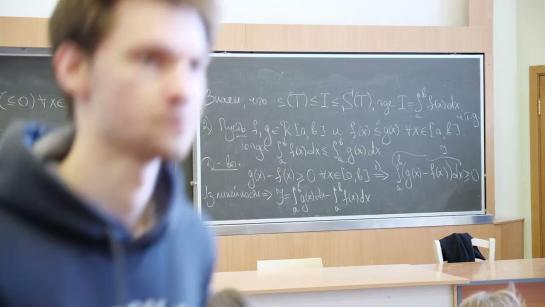 (≤0) ∀x∈
Знаем, что s(T) ≤ I ≤ S(T), где I = ∫_a^b f(x)dx
2) Пусть f, g ∈ R[a,b] и f(x) ≤ g(x) ∀x∈[a,b]
тогда ∫_a^b f(x)dx ≤ ∫_a^b g(x)dx
Д-во: g(x)-f(x) ≥ 0 ∀x∈[a,b] ⇒ ∫_a^b (g(x)-f(x))dx ≥ 0
Из линейности ⇒ y = ∫_a^b g(x)dx - ∫_a^b f(x)dx